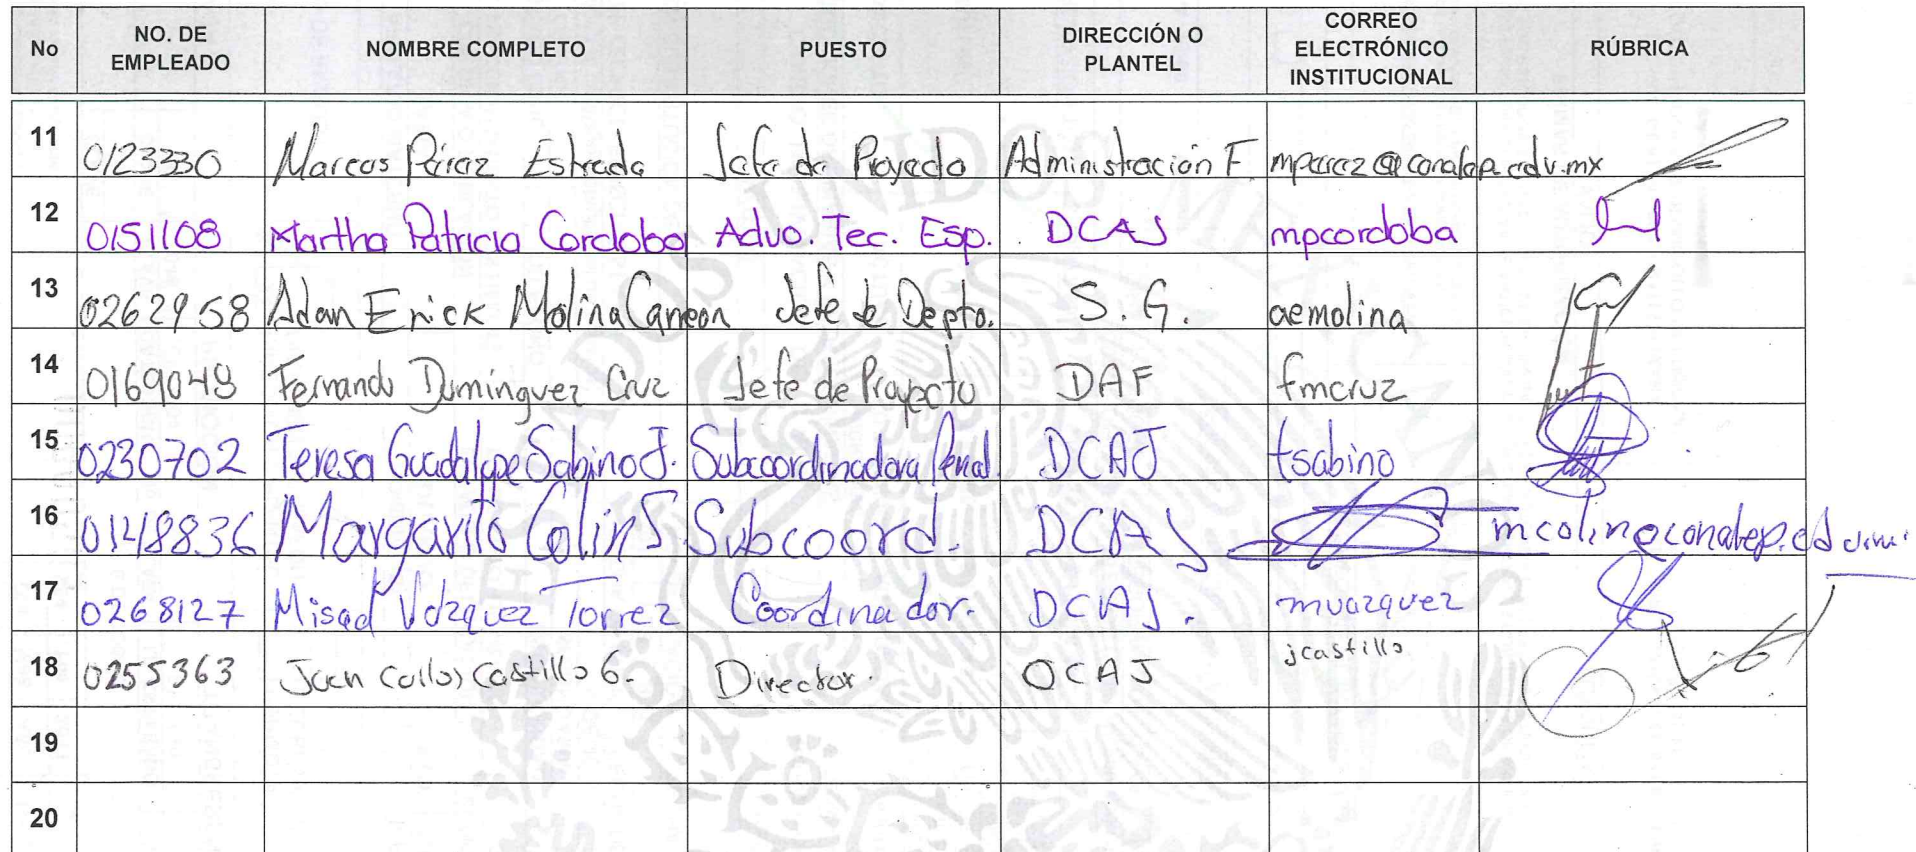 No NO. DE EMPLEADO NOMBRE COMPLETO PUESTO DIRECCIÓN O PLANTEL CORREO ELECTRÓNICO INSTITUCIONAL RÚBRICA
11 0123330 Marcos Pérez Estrada Jefe de Proyecto Administración F. mperez@conalep.edu.mx
12 0151108 Martha Patricia Cordoba Advo. Tec. Esp. DCAJ mpcordoba
13 0262958 Adan Erick Molina Jefe de Depto. S. G. aemolina
14 0169048 Fernando Domínguez Cruz Jefe de Proyecto DAF fmcruz
15 0230702 Teresa Guadalupe Sabino J. Subcoordinadora Penal DCAJ tsabino
16 0148836 Margarito Colin S Subcoord. DCAJ mcolin@conalep.ed
17 0268127 Misael Vázquez Torrez Coordinador. DCAJ. mvazquez
18 0255363 Juan Carlos Castillo G. Director. DCAJ jcastillo
19
20
ESTADOS UNIDOS MEXICANOS